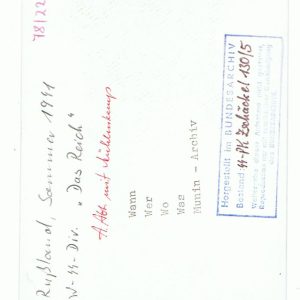 78/22
Rußland, Sommer 1941
W-SS-Div. „Das Reich"
A. Abt. mit Mühlenkamp
Wann
Wer
Wo
Was
Munin - Archiv
Hergestellt im BUNDESARCHIV
Bestand: SS-PK Zschäckel 130/5